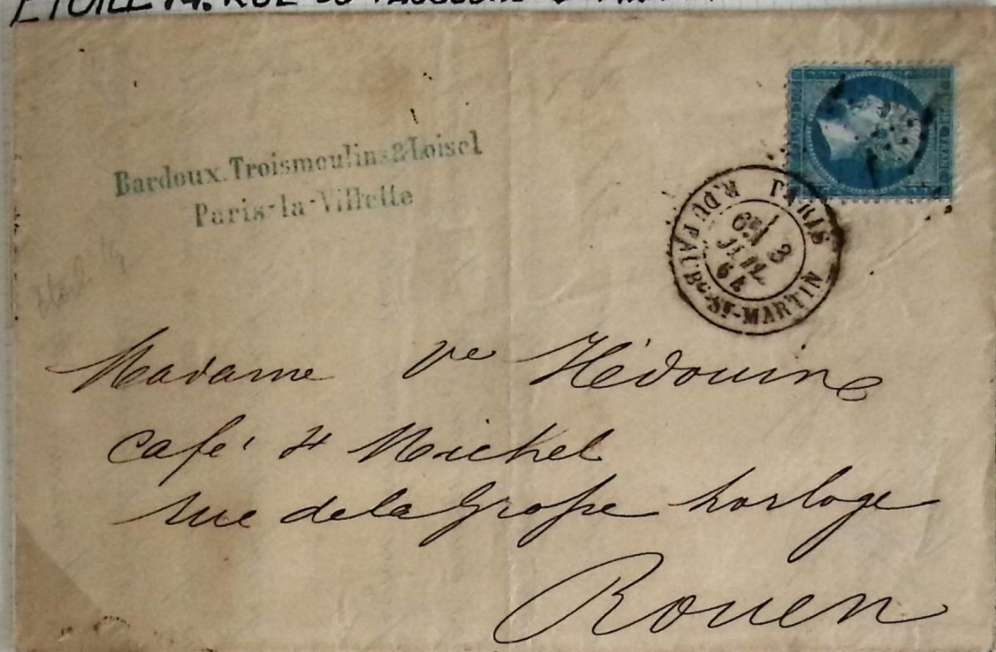 ETOILE 14. RUE DU FAUBOURG
Bardoux.Troismoulins&Loisel
Paris-la-Villette
PARIS
R. DU FAUBG-ST-MARTIN
8
JUIL
64
Madame Ve Hédouin
Café St Michel
rue de la Grosse horloge
Rouen